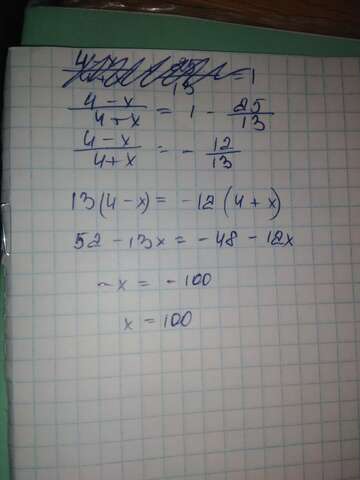 = 1
(4 - x)/(4 + x) = 1 - 25/13
(4 - x)/(4 + x) = - 12/13
13(4 - x) = -12(4 + x)
52 - 13x = -48 - 12x
-x = -100
x = 100